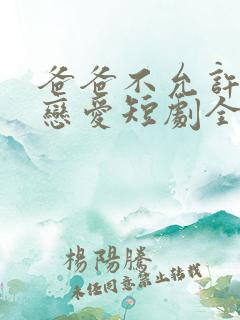 爸爸不允許
戀愛短劇全
楊陽騰
未任同意禁止轉載